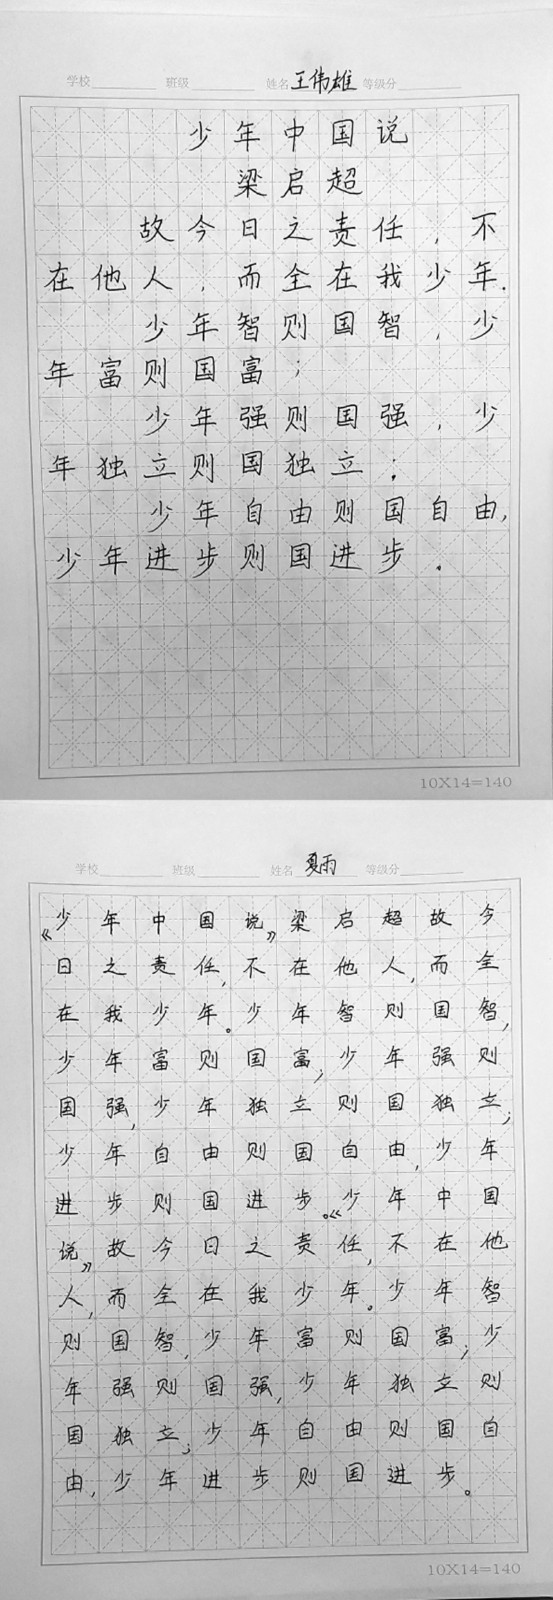 学校 班级 姓名 王伟雄 等级分
少年中国说
梁启超
故今日之责任，不
在他人，而全在我少年.
少年智则国智，少
年富则国富；
少年强则国强，少
年独立则国独立；
少年自由则国自由，
少年进步则国进步.
10X14=140
学校 班级 姓名 夏雨 等级分
《少年中国说》梁启超故今
日之责任,不在他人,而全
在我少年。少年智则国智,
少年富则国富;少年强则
国强,少年独立则国独立;
少年自由则国自由,少年
进步则国进步。《少年中国
说》故今日之责任,不在他
人,而全在我少年。少年智
则国智,少年富则国富;少
年强则国强,少年独立则
国独立;少年自由则国自
由,少年进步则国进步。
10X14=140